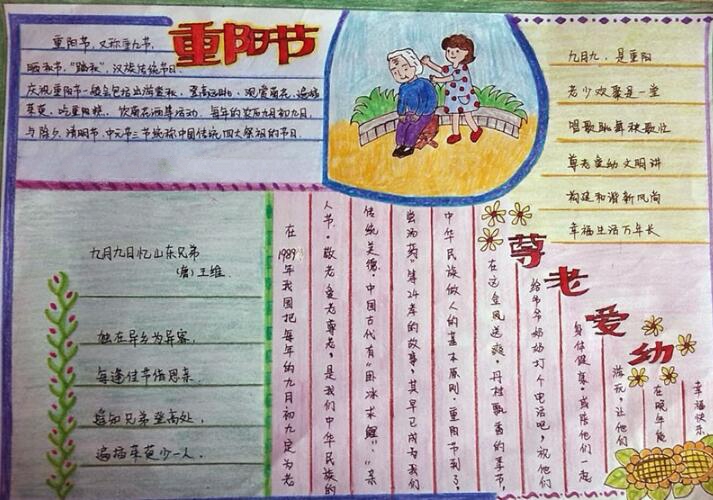 重阳节
重阳节,又称重九节,
晒秋节,“踏秋”,汉族传统节日。
庆祝重阳节一般会包括出游赏秋、登高远眺、观赏菊花、遍插
茱萸、吃重阳糕、饮菊花酒等活动。每年的农历九月初九日,
与除夕、清明节、中元节三节统称中国传统四大祭祖的节日。
九月九,是重阳
老少欢聚是一堂
唱歌跳舞秧歌忙
尊老爱幼文明讲
构建和谐新风尚
幸福生活万年长
九月九日忆山东兄弟
(唐)王维
独在异乡为异客,
每逢佳节倍思亲。
遥知兄弟登高处,
遍插茱萸少一人。
尊老爱幼
在1989年我国把每年的九月初九定为老
人节。敬老爱老尊老,是我们中华民族的
传统美德。中国古代有“卧冰求鲤”、“亲
尝汤药”等24孝的故事,其早已成为我们
中华民族做人的基本原则。重阳节到了,
在这金风送爽,丹桂飘香的季节,
给爷爷奶奶打个电话吧,祝他们
身体健康,或陪他们一起
游玩,让他们
在晚年能
幸福快乐